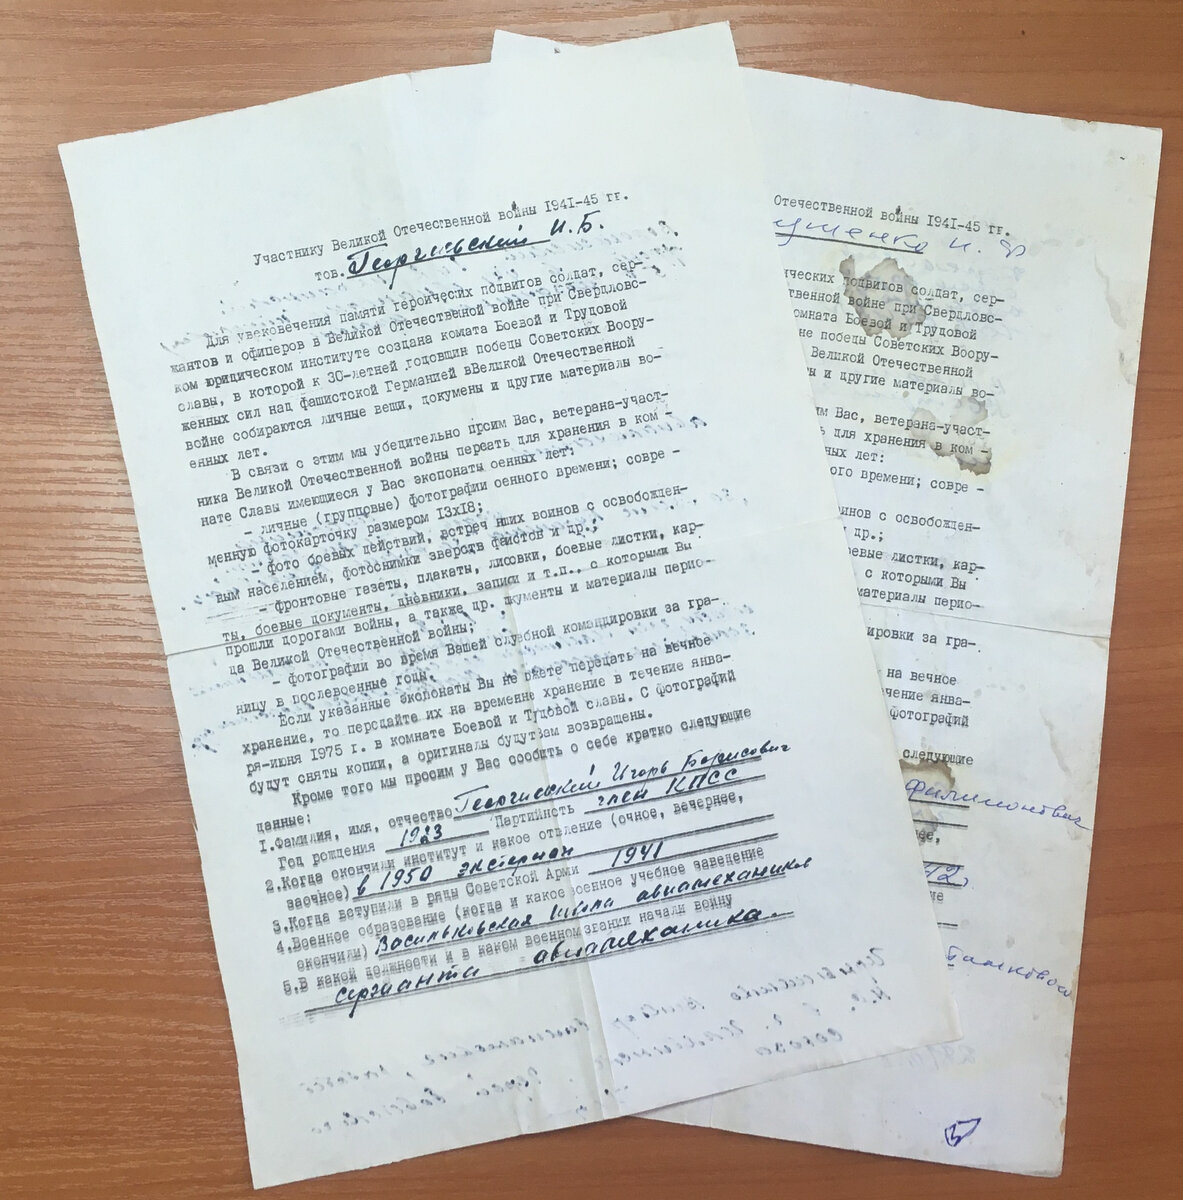 Участнику Великой Отечественной войны 1941-45 гг.
тов. Георгиевский И.Б.
Для увековечения памяти героических подвигов солдат, сер-
жантов и офиперов в Великой Отечественной войне при Свердловс-
ком юридическом институте создана комата Боевой и Трудовой
славы, в которой к 30-летней годовщин победы Советских Воору-
женных сил над фашистской Германией вВеликой Отечественной
войне собираются личные вещи, докумены и другие материалы во-
енных лет.
В связи с этим мы убедительно просим Вас, ветерана-участ-
ника Великой Отечественной войны перелать для хранения в ком -
нате Славы имеющиеся у Вас экспонаты оенных лет:
- личные (групповые) фотографии оенного времени; совре -
менную фотокарточку размером 13х18;
- фото боевых действий, встреч нших воинов с освобожден-
ным населением, фотоснимки зверств фаистов и др.;
- фронтовые газеты, плакаты, лисовки, боевые листки, кар-
ты, боевые документы, дневники, записи и т.п., с которыми Вы
прошли дорогами войны, а также др. документы и материалы перио-
ца Великой Отечественной войны;
- фотографии во время Вашей служебной командировки за гра-
ницу в послевоенные годы.
Если указанные экспонаты Вы не можете передать на вечное
хранение, то передайте их на временне хранение в течение янва-
ря-июня 1975 г. в комнате Боевой и Тудовой славы. С фотографий
будут сняты копии, а оригиналы будут вам возвращены.
Кроме того мы просим у Вас сообить о себе кратко следующие
данные:
1.Фамилия, имя, отчество Георгиевский Игорь Борисович
Год рождения 1923 Партийность член КПСС
2.Когда окончили институт и какое отделение (очное, вечернее,
заочное) в 1950 экстерном
3.Когда вступили в ряды Советской Армии 1941
4.Военное образование (когда и какое военное учебное заведение
окончили) Васильковская школа авиамехаников
5.В какой должности и в каком военном звании начали войну
сержанта авиамеханика.
Отечественной войны 1941-45 гг.
ушенко И. Ф
ических подвигов солдат, сер-
ственной войне при Свердловс-
омната Боевой и Трудовой
не победы Советских Воору-
Великой Отечественной
ы и другие материалы во-
им Вас, ветерана-участ-
ь для хранения в ком -
ных лет:
ного времени; совре -
оинов с освобожден-
др.;
оевые листки, кар-
с которыми Вы
материалы перио-
ировки за гра-
на вечное
чение янва-
фотографий
следующие
Филимонович
ее,
42г
ие
Балковой